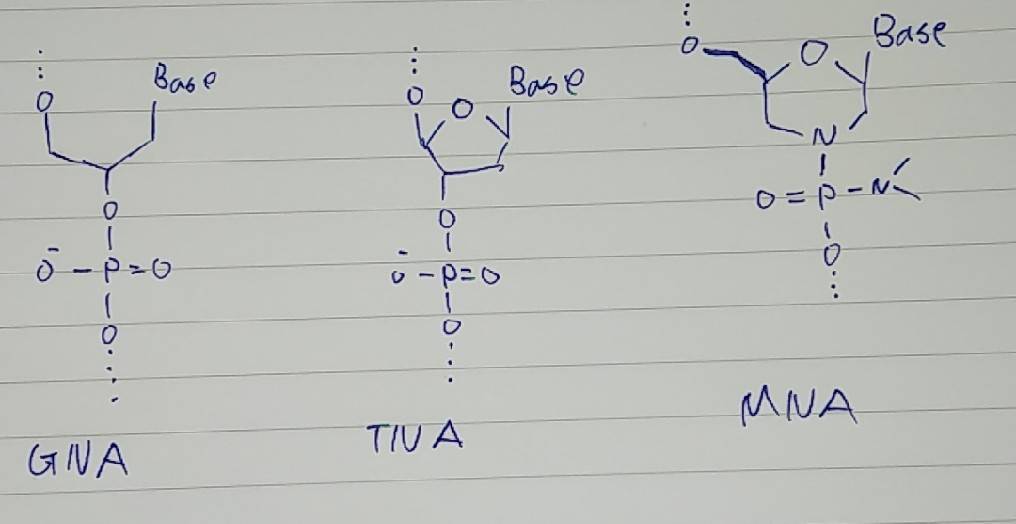 O
Base
O
O⁻ – P = O
O
GNA
O
O
Base
O
O⁻ – P = O
O
TNA
O
O
Base
N
O = P – N
O
MNA